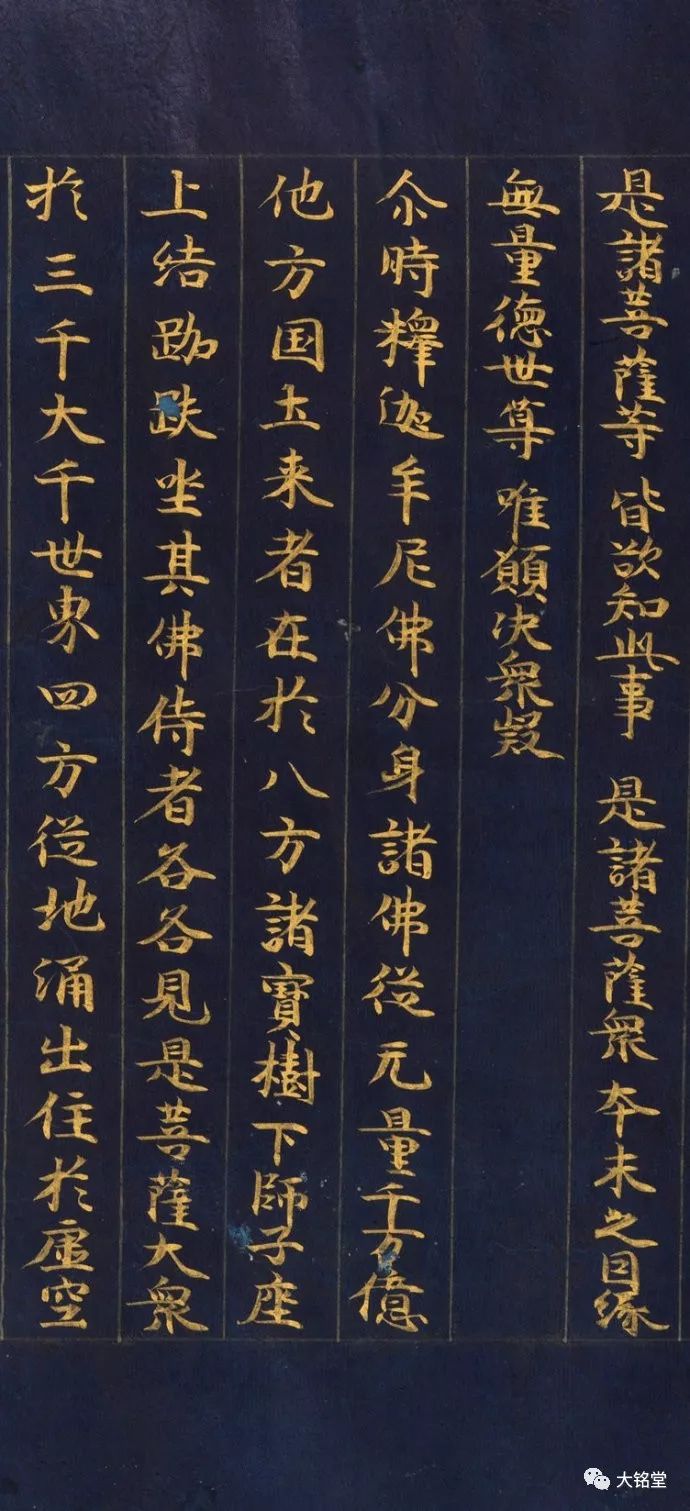 是諸菩薩等 皆欲知此事 是諸菩薩衆 本末之因縁
無量徳世尊 唯願决衆疑
尒時釋迦牟尼佛分身諸佛從无量千万億
他方国土来者在於八方諸寳樹下師子座
上結跏趺坐其佛侍者各各見是菩薩大衆
於三千大千世界四方從地涌出住於虚空
大铭堂